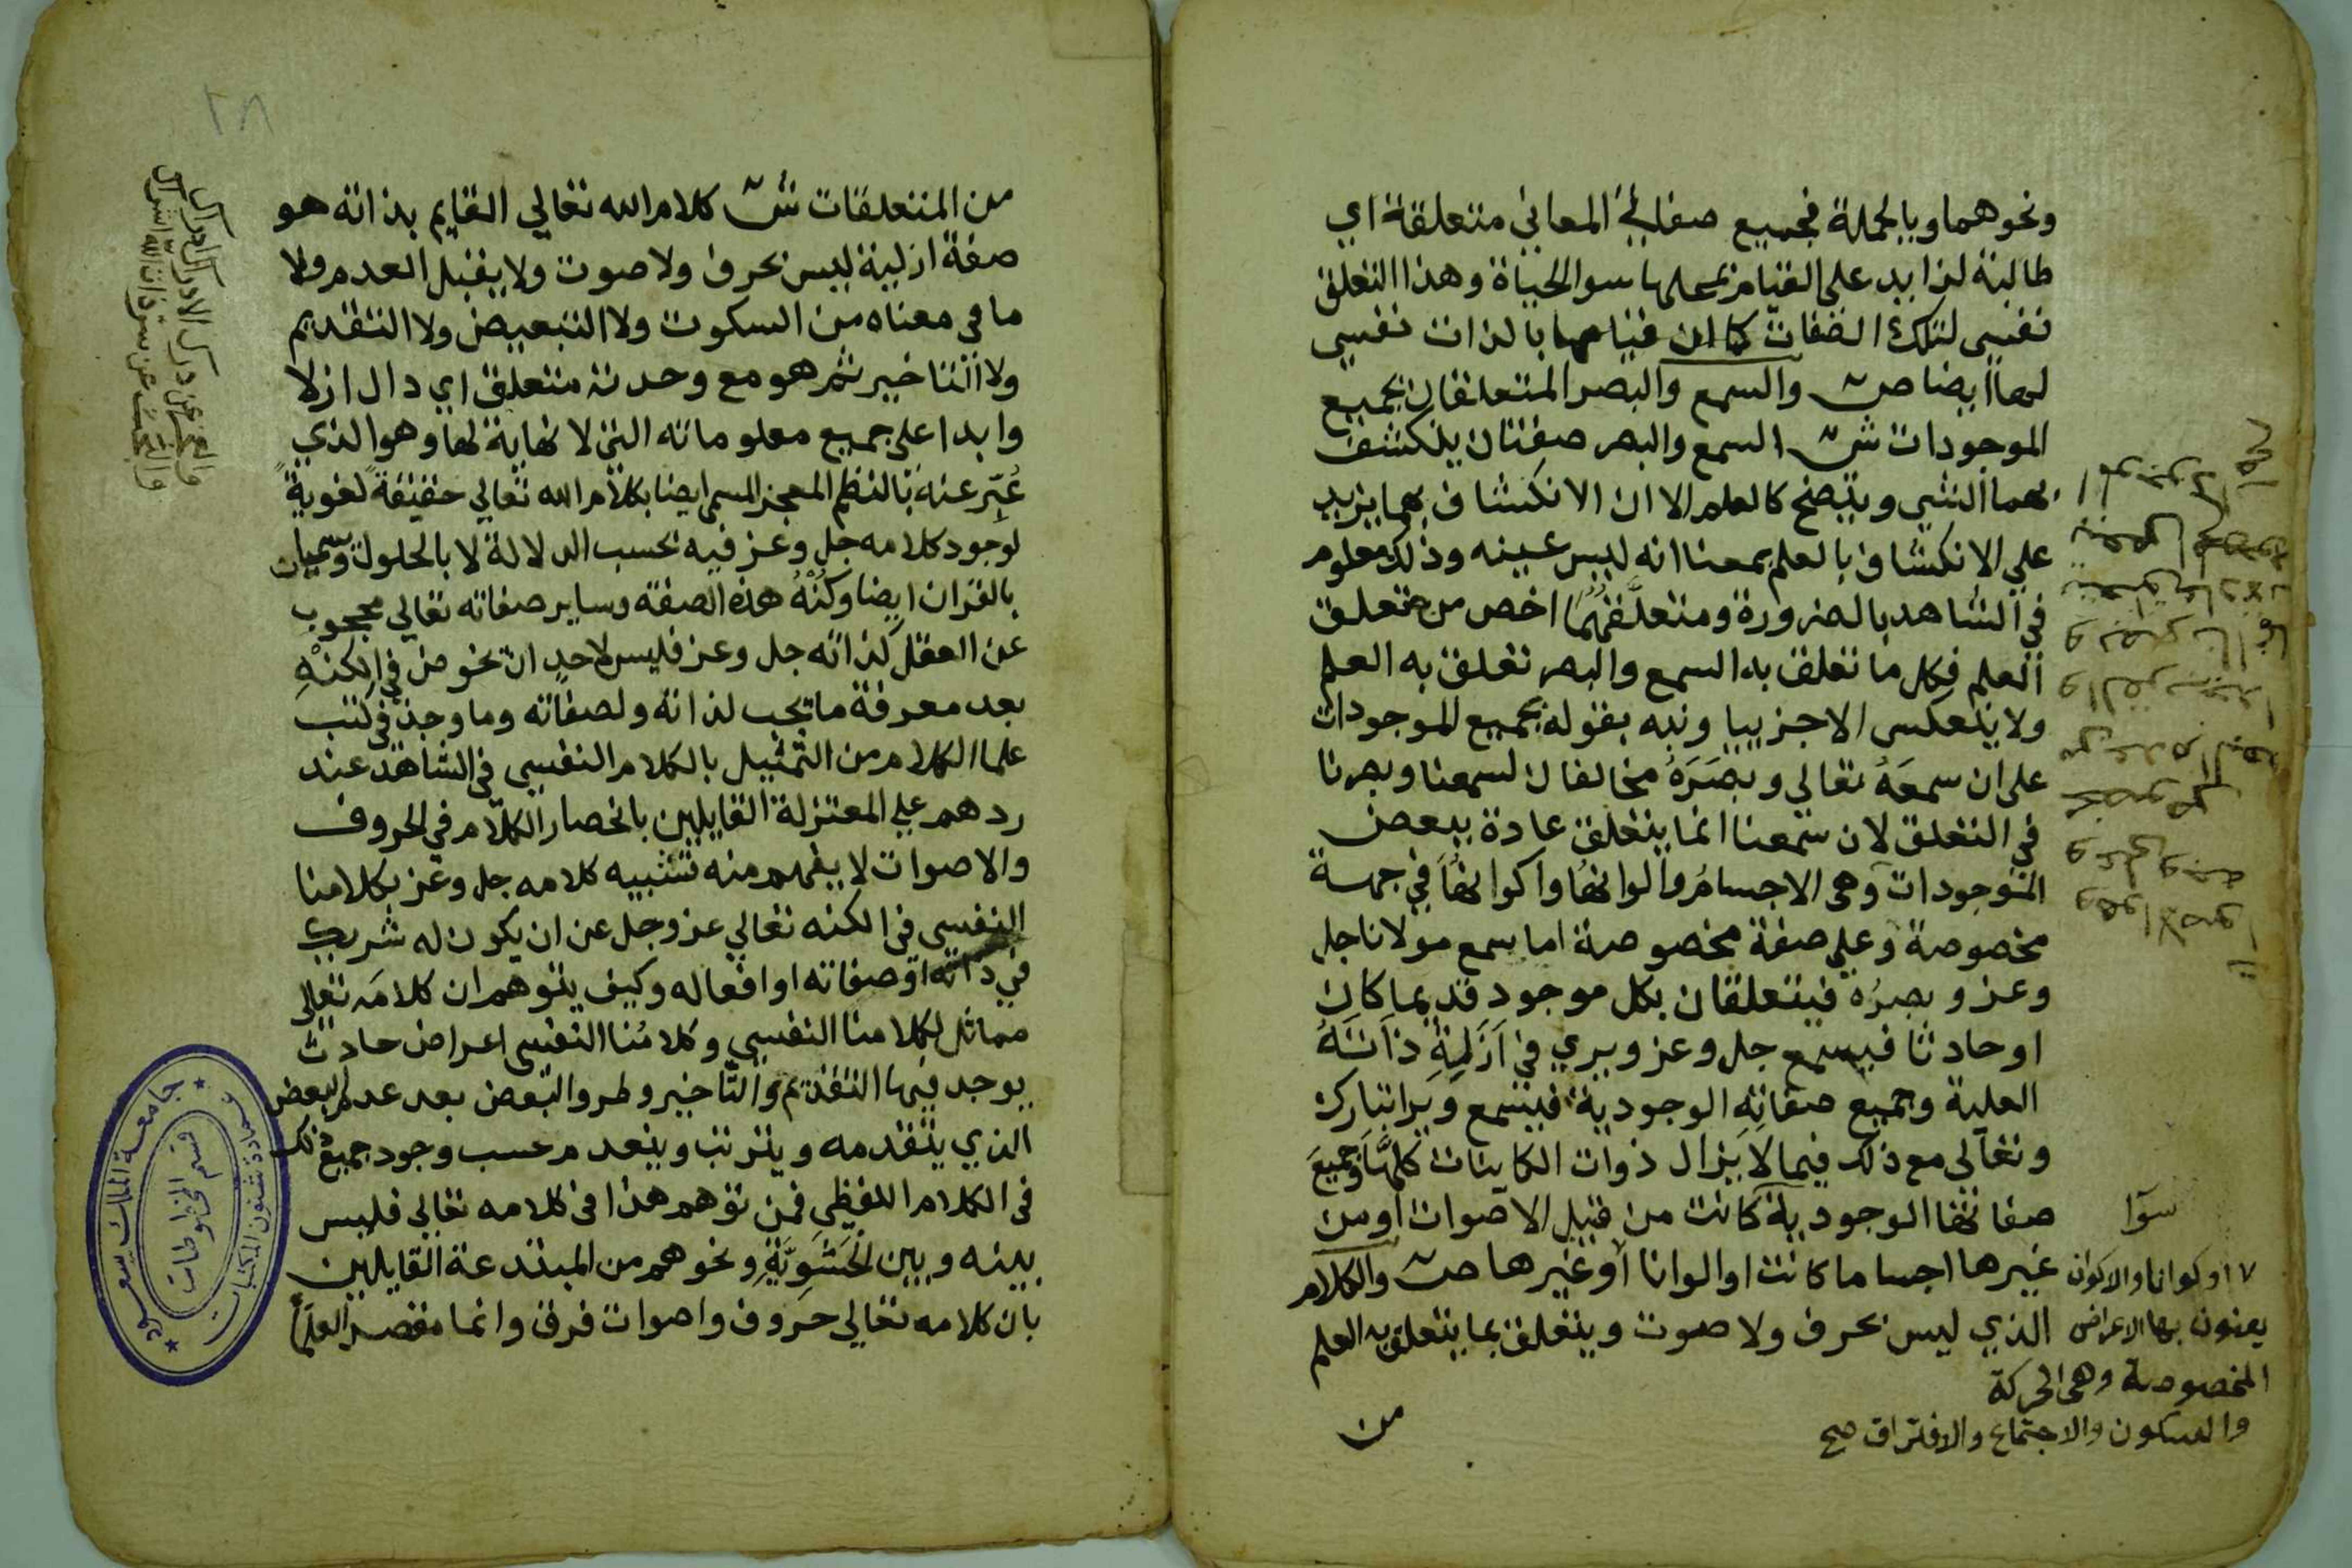 ونحوهما وبالجملة فجميع صفات المعاني متعلقة اي
طالبة لزايد على القيام بمحلها سوا الحياة وهذا التعلق
نفسي لتلك الصفات كما ان قيامها بالذات نفسي
لها ايضا ص والسمع والبصر المتعلقان بجميع
الموجودات ش السمع والبصر صفتان ينكشف
بهما الشي ويتضح كالعلم الا ان الانكشاف بهما يزيد
علي الانكشاف بالعلم بمعنا انه ليس عينه وذلك معلوم
في الشاهد بالضرورة ومتعلقهما اخص من متعلق
العلم فكل ما تعلق به السمع والبصر تعلق به العلم
ولا ينعكس الا جزييا ونبه بقوله بجميع الموجودات
على ان سمعه تعالي وبصره مخالفان لسمعنا وبصرنا
في التعلق لان سمعنا انما يتعلق عادة ببعض
الموجودات وهي الاجسام والوانها واكوانها في جهة
مخصوصة وعلي صفة مخصوصة اما سمع مولانا جل
وعز وبصره فيتعلقان بكل موجود قديما كان
او حادثا فيسمع جل وعز ويري في ازله ذاته
العلية وجميع صفاته الوجودية فيسمع ويرا تبارك
وتعالى مع ذلك فيما لا يزال ذوات الكاينات كلها وجميع
صفاتها الوجودية كانت من قبيل الاصوات او من
سوا
غيرها اجساما كانت او الوانا او غيرها ص والكلام
الذي ليس بحرف ولا صوت ويتعلق بما يتعلق به العلم
او كوانا والاكوان
يعنون بها الاعراض
المخصوصة وهى الحركة
والسكون والاجتماع والافتراق صح
من
٢٨
من المتعلقات ش كلام الله تعالي القايم بذاته هو
صفة ازلية ليس بحرف ولا صوت ولا يقبل العدم ولا
ما في معناه من السكوت ولا التبعيض ولا التقديم
ولا التاخير ثم هو مع وحدته متعلق اي دال ازلا
وابدا على جميع معلوماته التي لا نهاية لها وهو الذي
عُبّر عنه بالنظم المعجز المسمي ايضا بكلام الله تعالي حقيقة لغوية
لوجود كلامه جل وعز فيه بحسب الدلالة لا بالحلول وسميان
بالقران ايضا وكُنْهُ هذه الصفة وساير صفاته تعالي محجوب
عن العقل كذاته جل وعز فليس لاحد ان يخوض في الكنه
بعد معرفة ما يجب لذاته ولصفاته وما وجد في كتب
علما الكلام من التمثيل بالكلام النفسي في الشاهد عند
ردهم علي المعتزلة القايلين بانحصار الكلام في الحروف
والاصوات لا يفهم منه تشبيه كلامه جل وعز بكلامنا
النفسي في الكنه تعالي عز وجل عن ان يكون له شريك
في ذاته او صفاته او افعاله وكيف يتوهم ان كلامه تعالى
مماثل لكلامنا النفسي وكلامنا النفسي اعراض حادث
يوجد فيها التقديم والتاخير وطرو البعض بعد عدم البعض
الذي يتقدمه ويترتب وينعدم حسب وجود جميع ذلك
في الكلام اللفظي فمن توهم هذا في كلامه تعالي فليس
بينه وبين الحَشَوِيَّةِ ونحوهم من المبتدعة القايلين
بان كلامه تعالي حروف واصوات فرق وانما مقصد العلما
جامعة الملك سعود
عمادة شئون المكتبات
قسم المخطوطات